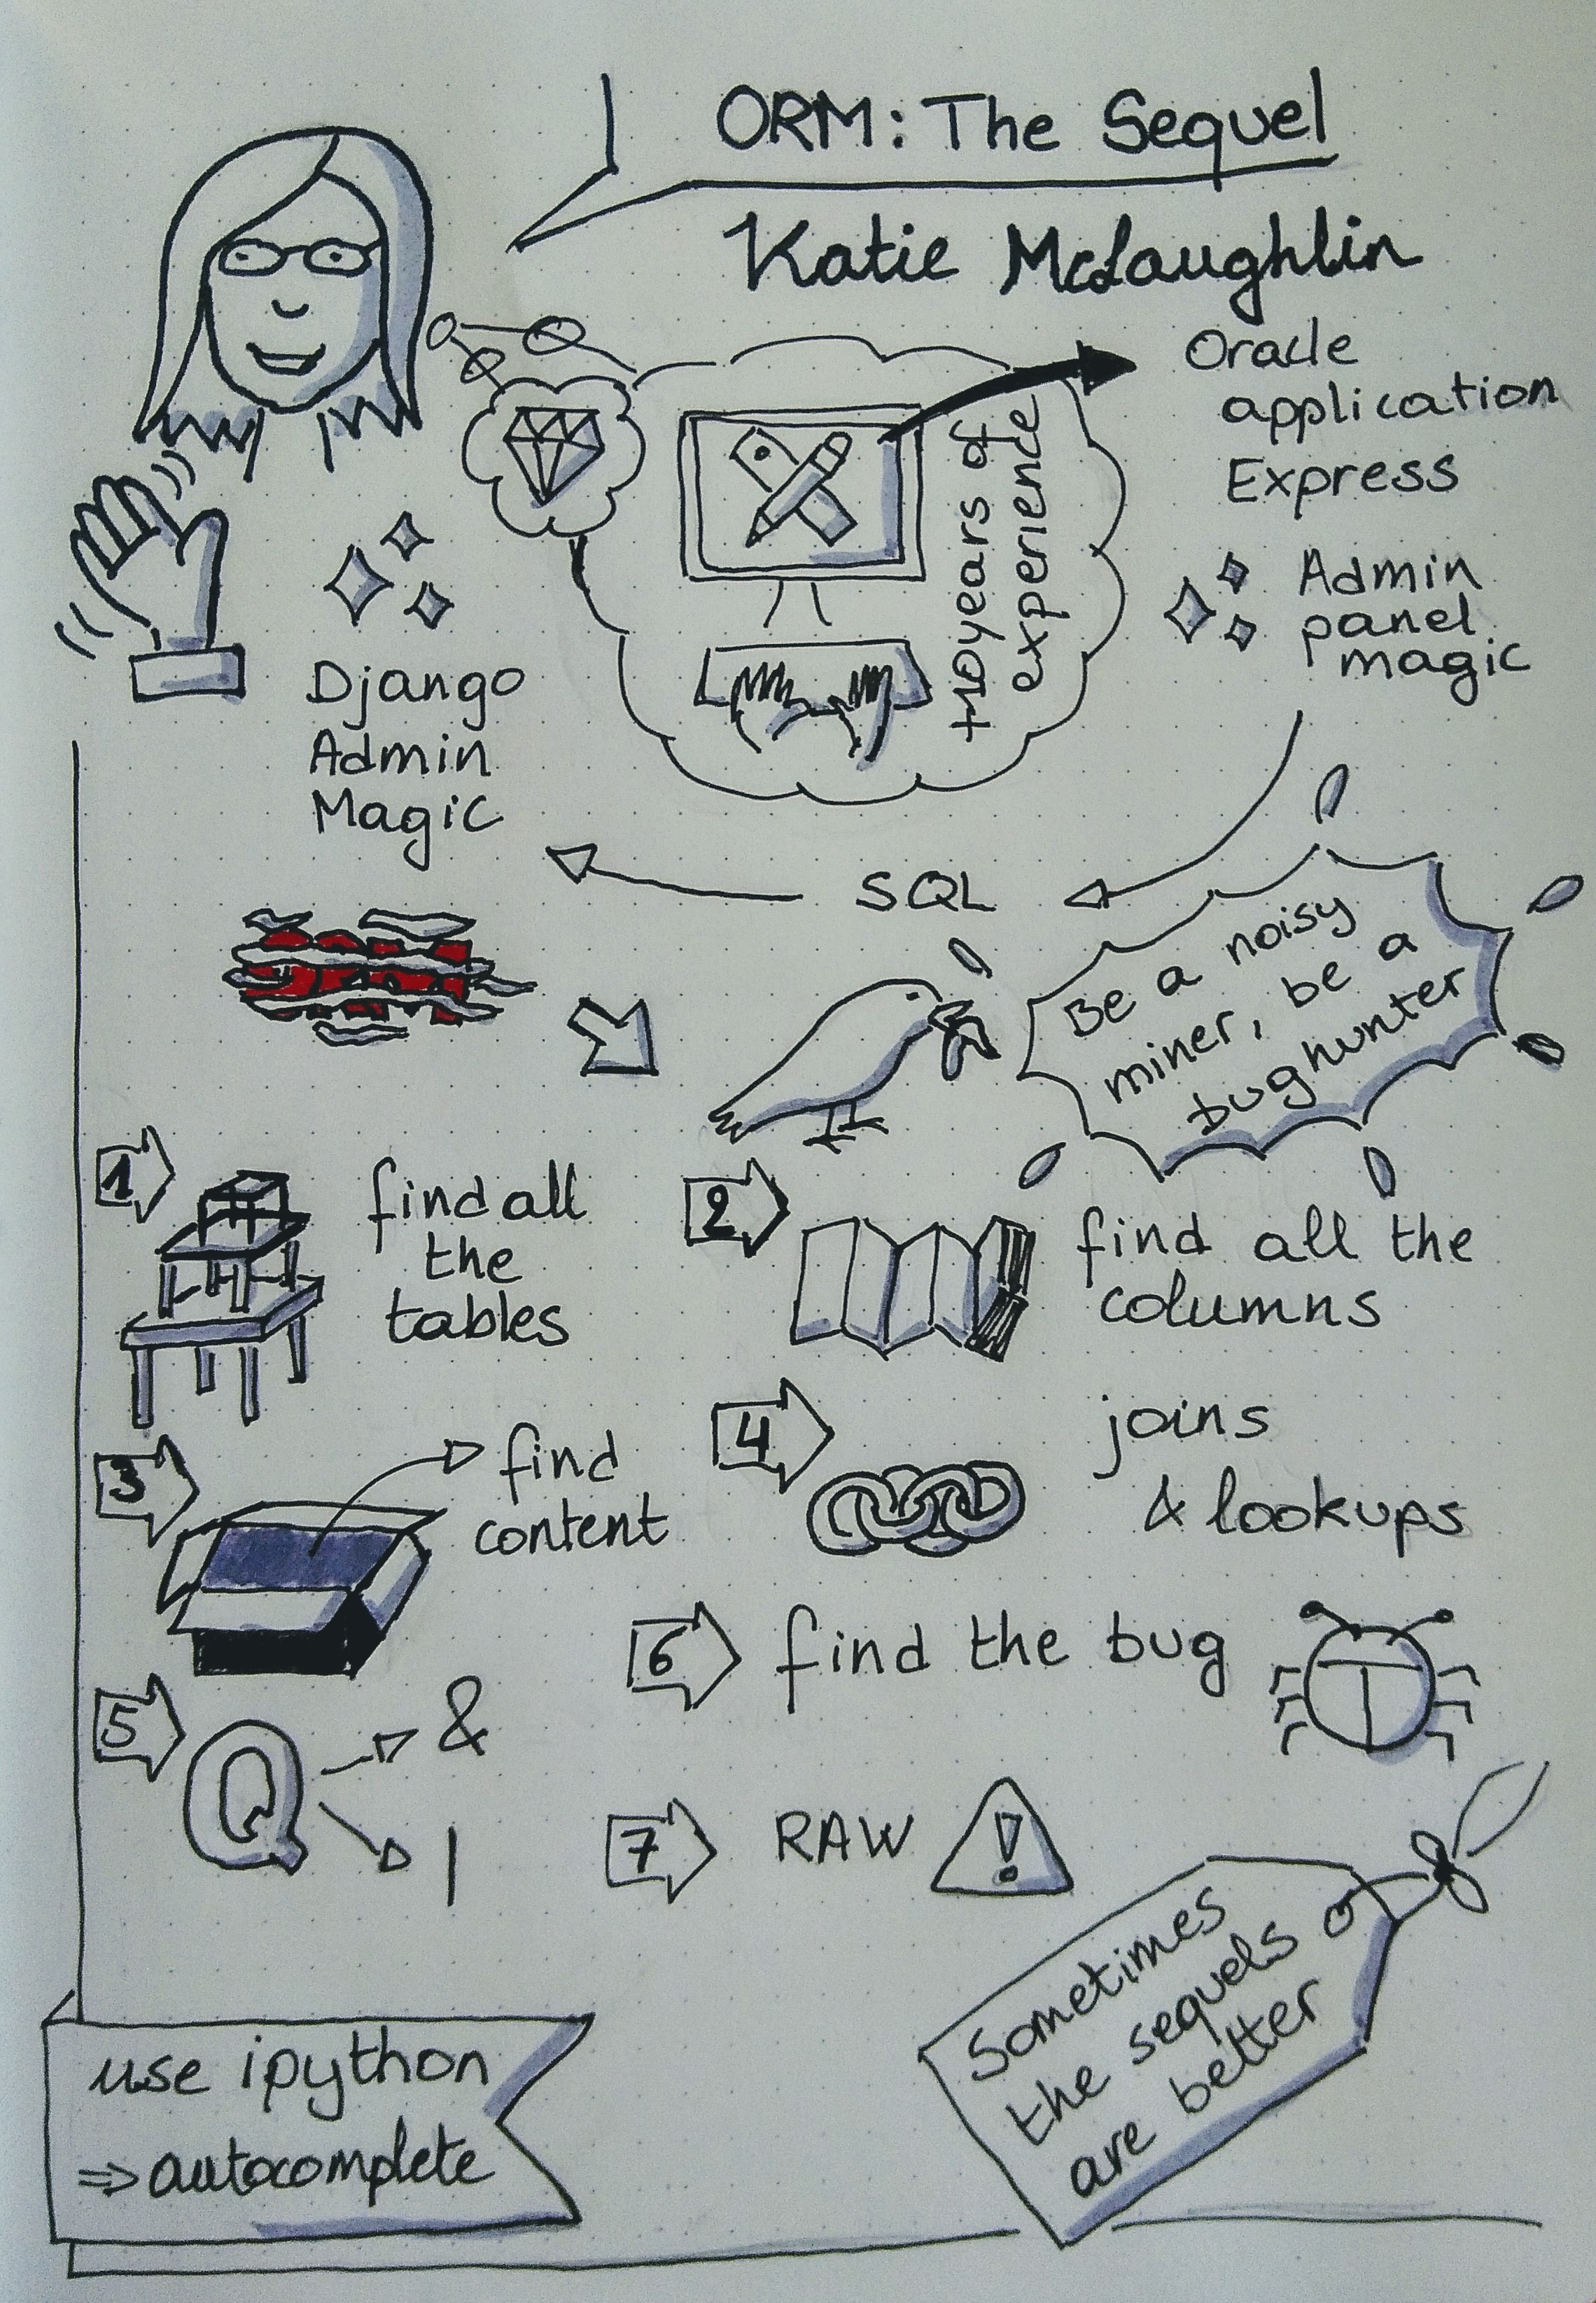 ORM: The Sequel
Katie McLaughlin
Oracle
application
Express
+10 years of
experience
Admin
panel
magic
Django
Admin
Magic
SQL
Be a noisy
miner, be a
bughunter
1
find all
the
tables
2
find all the
columns
3
find
content
4
joins
& lookups
5
Q
&
|
6
find the bug
7
RAW
!
use ipython
⇒ autocomplete
Sometimes
the sequels
are better